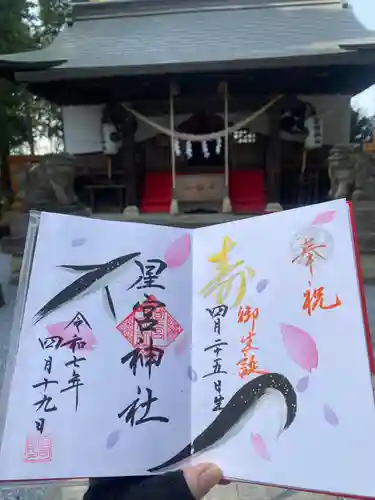 奉祝
御生誕
四月二十五日生
寿
星宮神社
令和七年
四月十九日